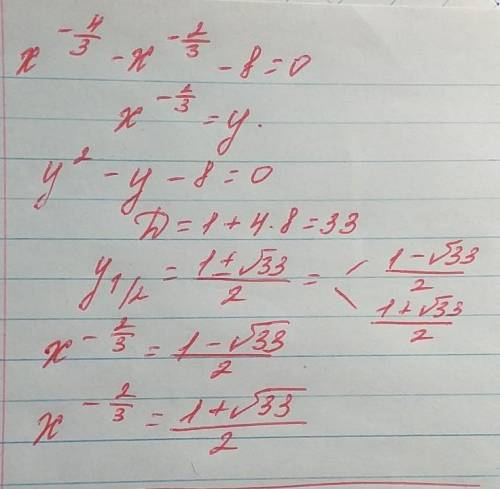 x^{-4/3} - x^{-2/3} - 8 = 0
x^{-2/3} = y.
y^2 - y - 8 = 0
D = 1 + 4·8 = 33
y_{1/2} = (1 ± √33)/2 = < (1 - √33)/2
(1 + √33)/2
x^{-2/3} = (1 - √33)/2
x^{-2/3} = (1 + √33)/2